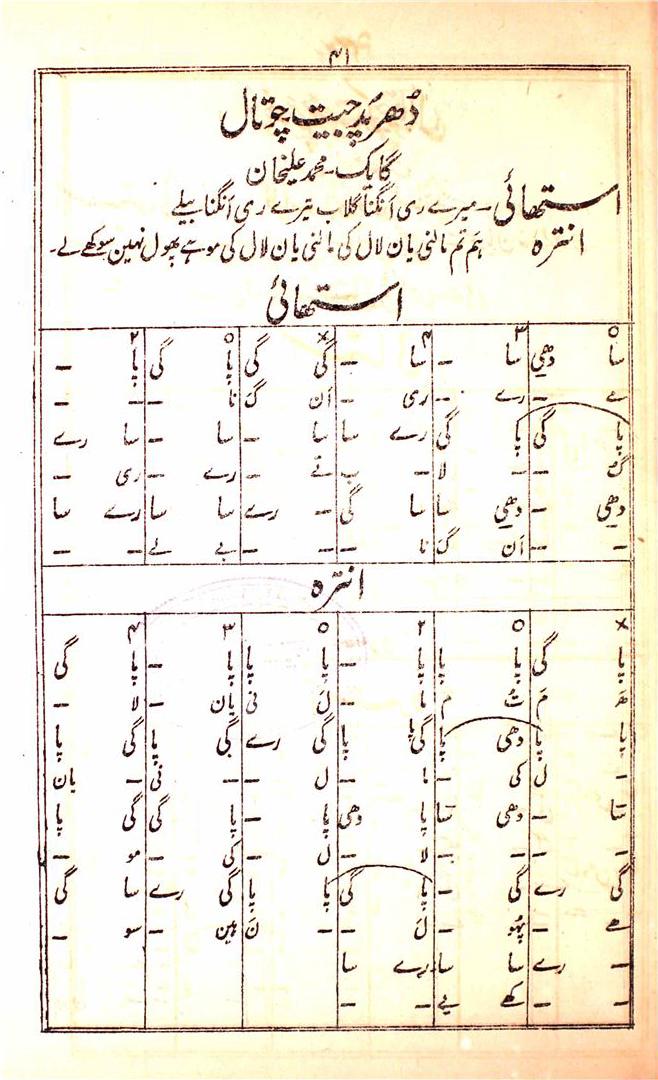 ۴۱
دُھرپد جیت چوتال
گایک۔ محمد علیخان
استھائی ۔ میرے ری انگنا گلاب تیرے ری انگنا بیلے
انترہ ہَم تم مالنی بان لال کی مالنی بان لال کی موہے پھول نہین سوکھے لے۔
استھائی
۵ ۳ ۴ × ۵ ۲
سا دھی سا – سا – گی گی پا گی پا –
ے – رے – ری – اَن گ نا – – –
پا گی پا گی رے سا سا – سا – سا رے
گ – – لا – ب تے – رے – ری –
دھی – دھی سا سا گی – رے سا سا رے سا
– – اَن گ نا – – – بے لے – –
انترہ
× ۵ ۲ ۵ ۳ ۴
پا گی پا پا پا – پا پا پا – پا گی
ھ مَ تُ م ما – لَ نی بان – لا –
پا پا دھی پا گی پا گی رے گی پا گی پا
ا ل کی – ما – ل – – نی – بان
سا – دھی سا پا دھی پا – پا گی گی پا
– – – – لا – ل – کی – مو –
گی رے گی – پا گی پا پا گی رے سا گی
ھے – پھو – ل – – نَ ہین – سو –
– رے سا سا رے سا
– – کھے لے – –